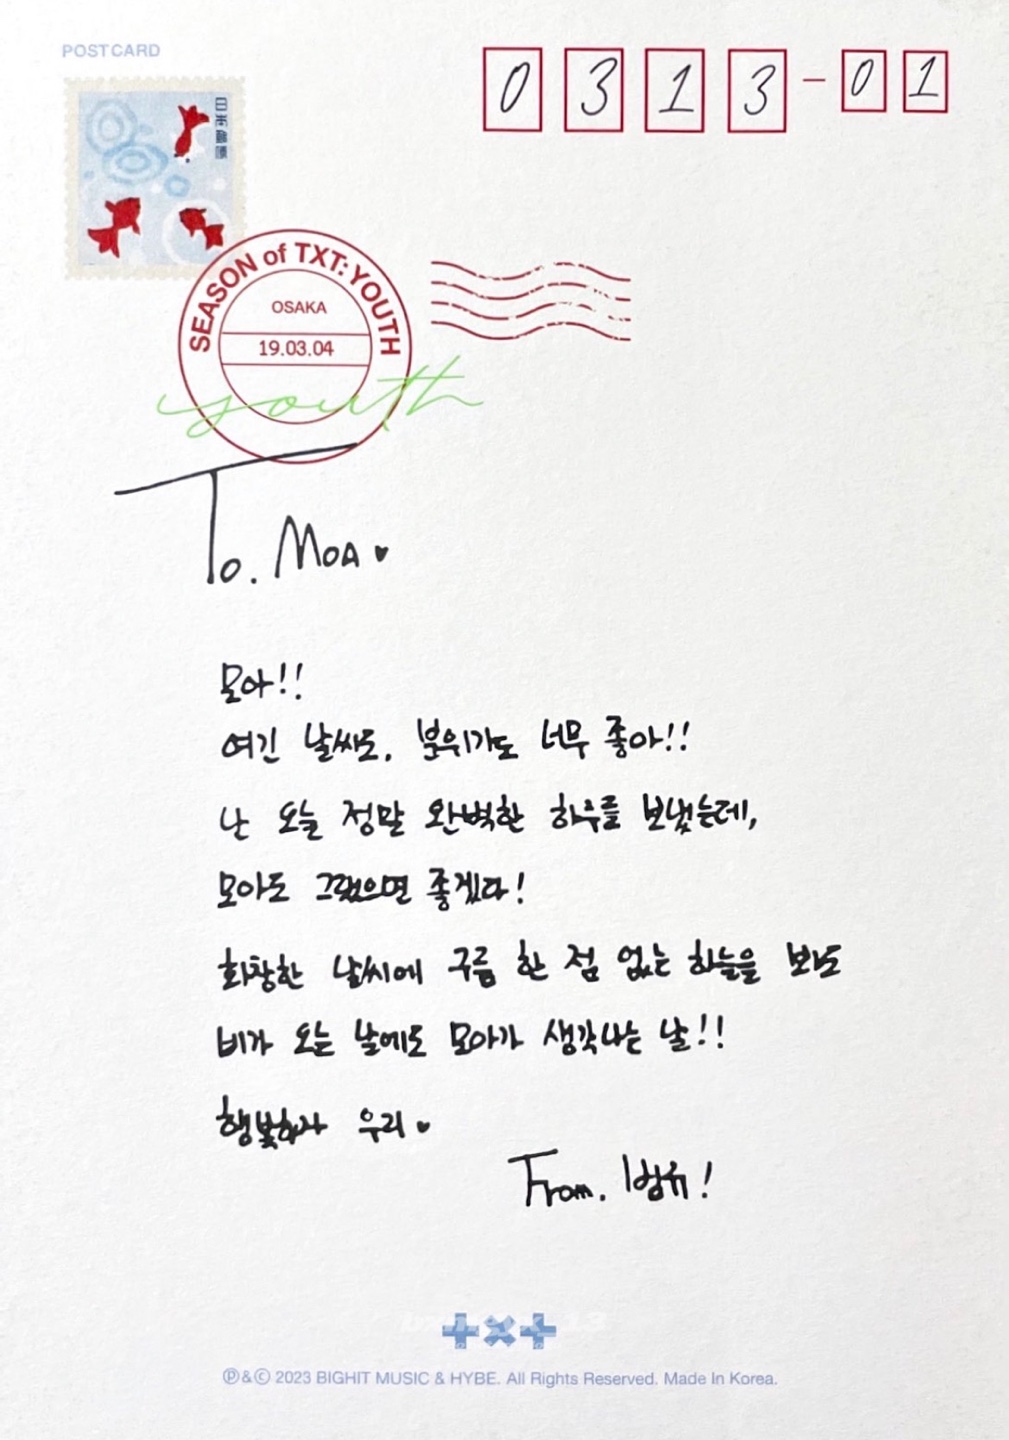 POSTCARD
0313-01
日本郵便
SEASON of TXT: YOUTH
OSAKA
19.03.04
youth
To. MOA ♥
모아!!
여긴 날씨도, 분위기도 너무 좋아!!
난 오늘 정말 완벽한 하루를 보냈는데,
모아도 그랬으면 좋겠다!
화창한 날씨에 구름 한 점 없는 하늘을 봐도
비가 오는 날에도 모아가 생각나는 날!!
행복하자 우리 ♥
From. 범규!
℗&© 2023 BIGHIT MUSIC & HYBE. All Rights Reserved. Made In Korea.